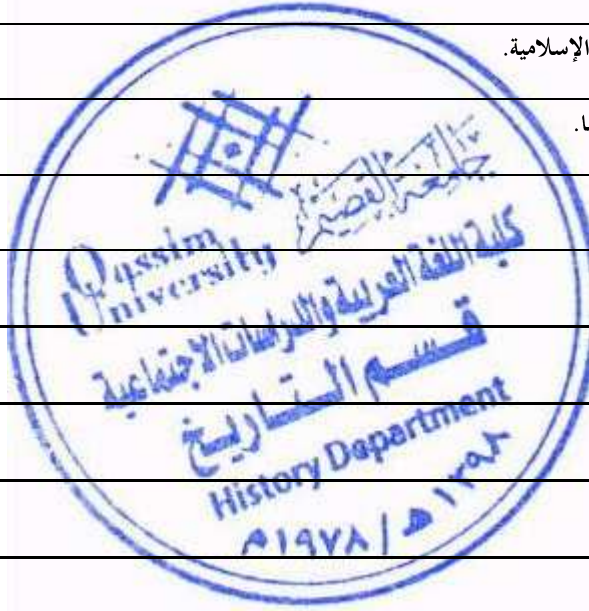 الإسلامية.
ا.
جامعة القصيم
Qassim
University
كلية اللغة العربية والدراسات الاجتماعية
قسم التاريخ
History Department
١٣٩٨هـ / ١٩٧٨م